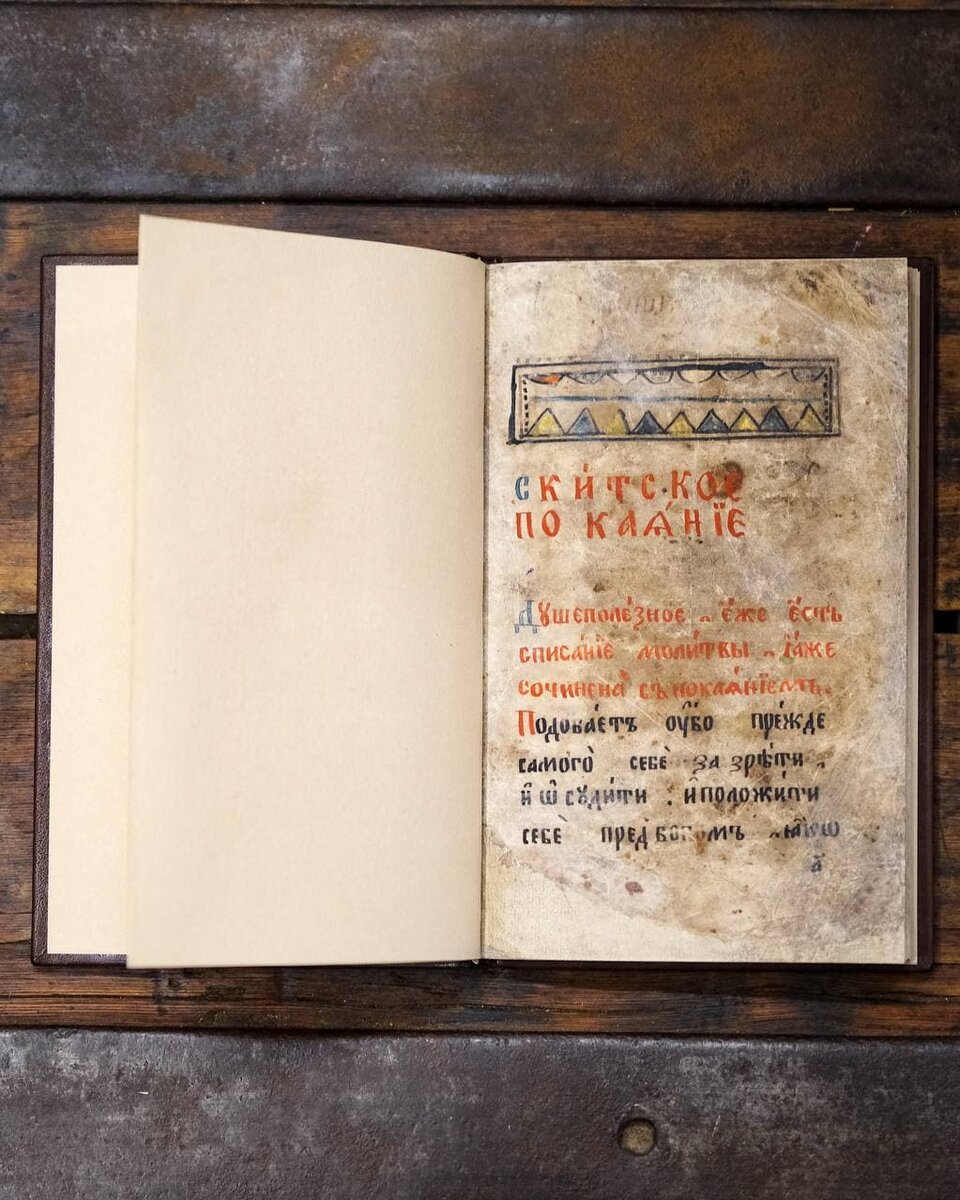 ски́тско́е
покаѧ́нїе
Дꙋшеполе́зное .. е҆́же е҆́сть
списа́нїе моли́твы .. ꙗ҆́же
сочинена̀ съ покаѧ́нїемъ.
Подоба́етъ ᲂу҆̀бо пре́жде
самого̀ себѐ зазрѣ́ти .
и҆ ѡ҆сꙋди́ти : и҆ положи́ти
себѐ пред богомъ ꙗ҆́кѡ